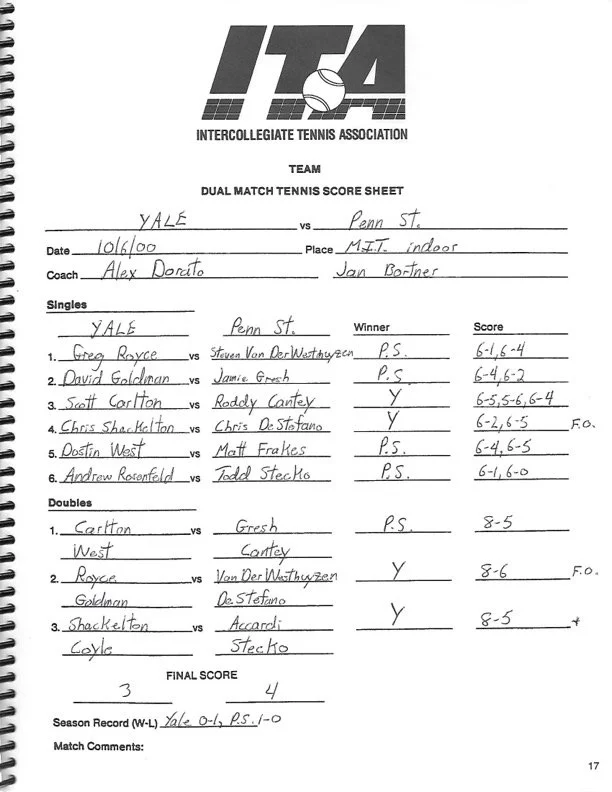 ITA
INTERCOLLEGIATE TENNIS ASSOCIATION
TEAM
DUAL MATCH TENNIS SCORE SHEET
YALE vs Penn St.
Date 10/6/00 Place M.I.T. indoor
Coach Alex Dorato Jan Bortner
Singles
YALE Penn St. Winner Score
1. Greg Royce vs Steven Van Der Westhuyzen P.S. 6-1, 6-4
2. David Goldman vs Jamie Gresh P.S. 6-4, 6-2
3. Scott Carlton vs Roddy Cantey Y 6-5, 5-6, 6-4
4. Chris Shackelton vs Chris DeStefano Y 6-2, 6-5 F.O.
5. Dostin West vs Matt Frakes P.S. 6-4, 6-5
6. Andrew Rosenfeld vs Todd Stecko P.S. 6-1, 6-0
Doubles
1. Carlton vs Gresh P.S. 8-5
West Cantey
2. Royce vs Van Der Westhuyzen Y 8-6 F.O.
Goldman DeStefano
3. Shackelton vs Accardi Y 8-5 +
Coyle Stecko
FINAL SCORE
3 4
Season Record (W-L) Yale 0-1, P.S. 1-0
Match Comments:
17